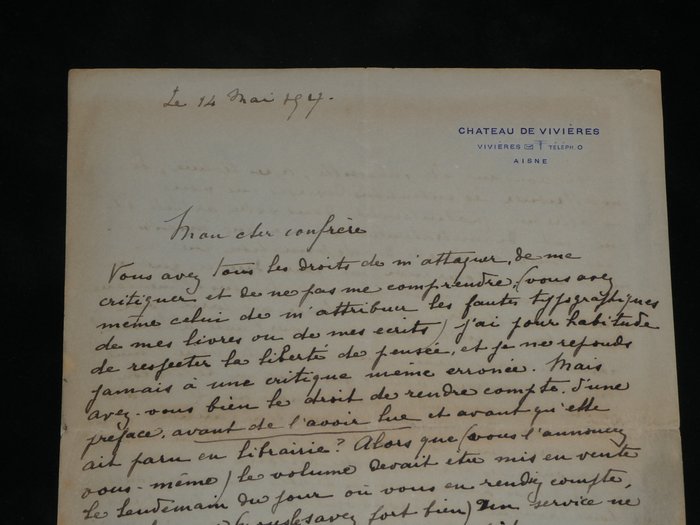 Le 14 Mai 197.
CHATEAU DE VIVIÈRES
VIVIÈRES TÉLÉPH O
AISNE
Mon cher confrère
Vous avez tous les droits de m'attaquer, de me
critiquer et de ne pas me comprendre, (vous avez
même celui de m'attribuer les fautes typographiques
de mes livres ou de mes ecrits) j'ai pour habitude
de respecter la liberté de pensée, et je ne reponds
jamais à une critique même erronée. Mais
avez-vous bien le droit de rendre compte d'une
préface, avant de l'avoir lue et avant qu'elle
ait paru en librairie? Alors que (vous l'annoncez
vous-même) le volume devait etre mis en vente
le lendemain du jour où vous en rendez compte,
(vous le savez fort bien) un service ne